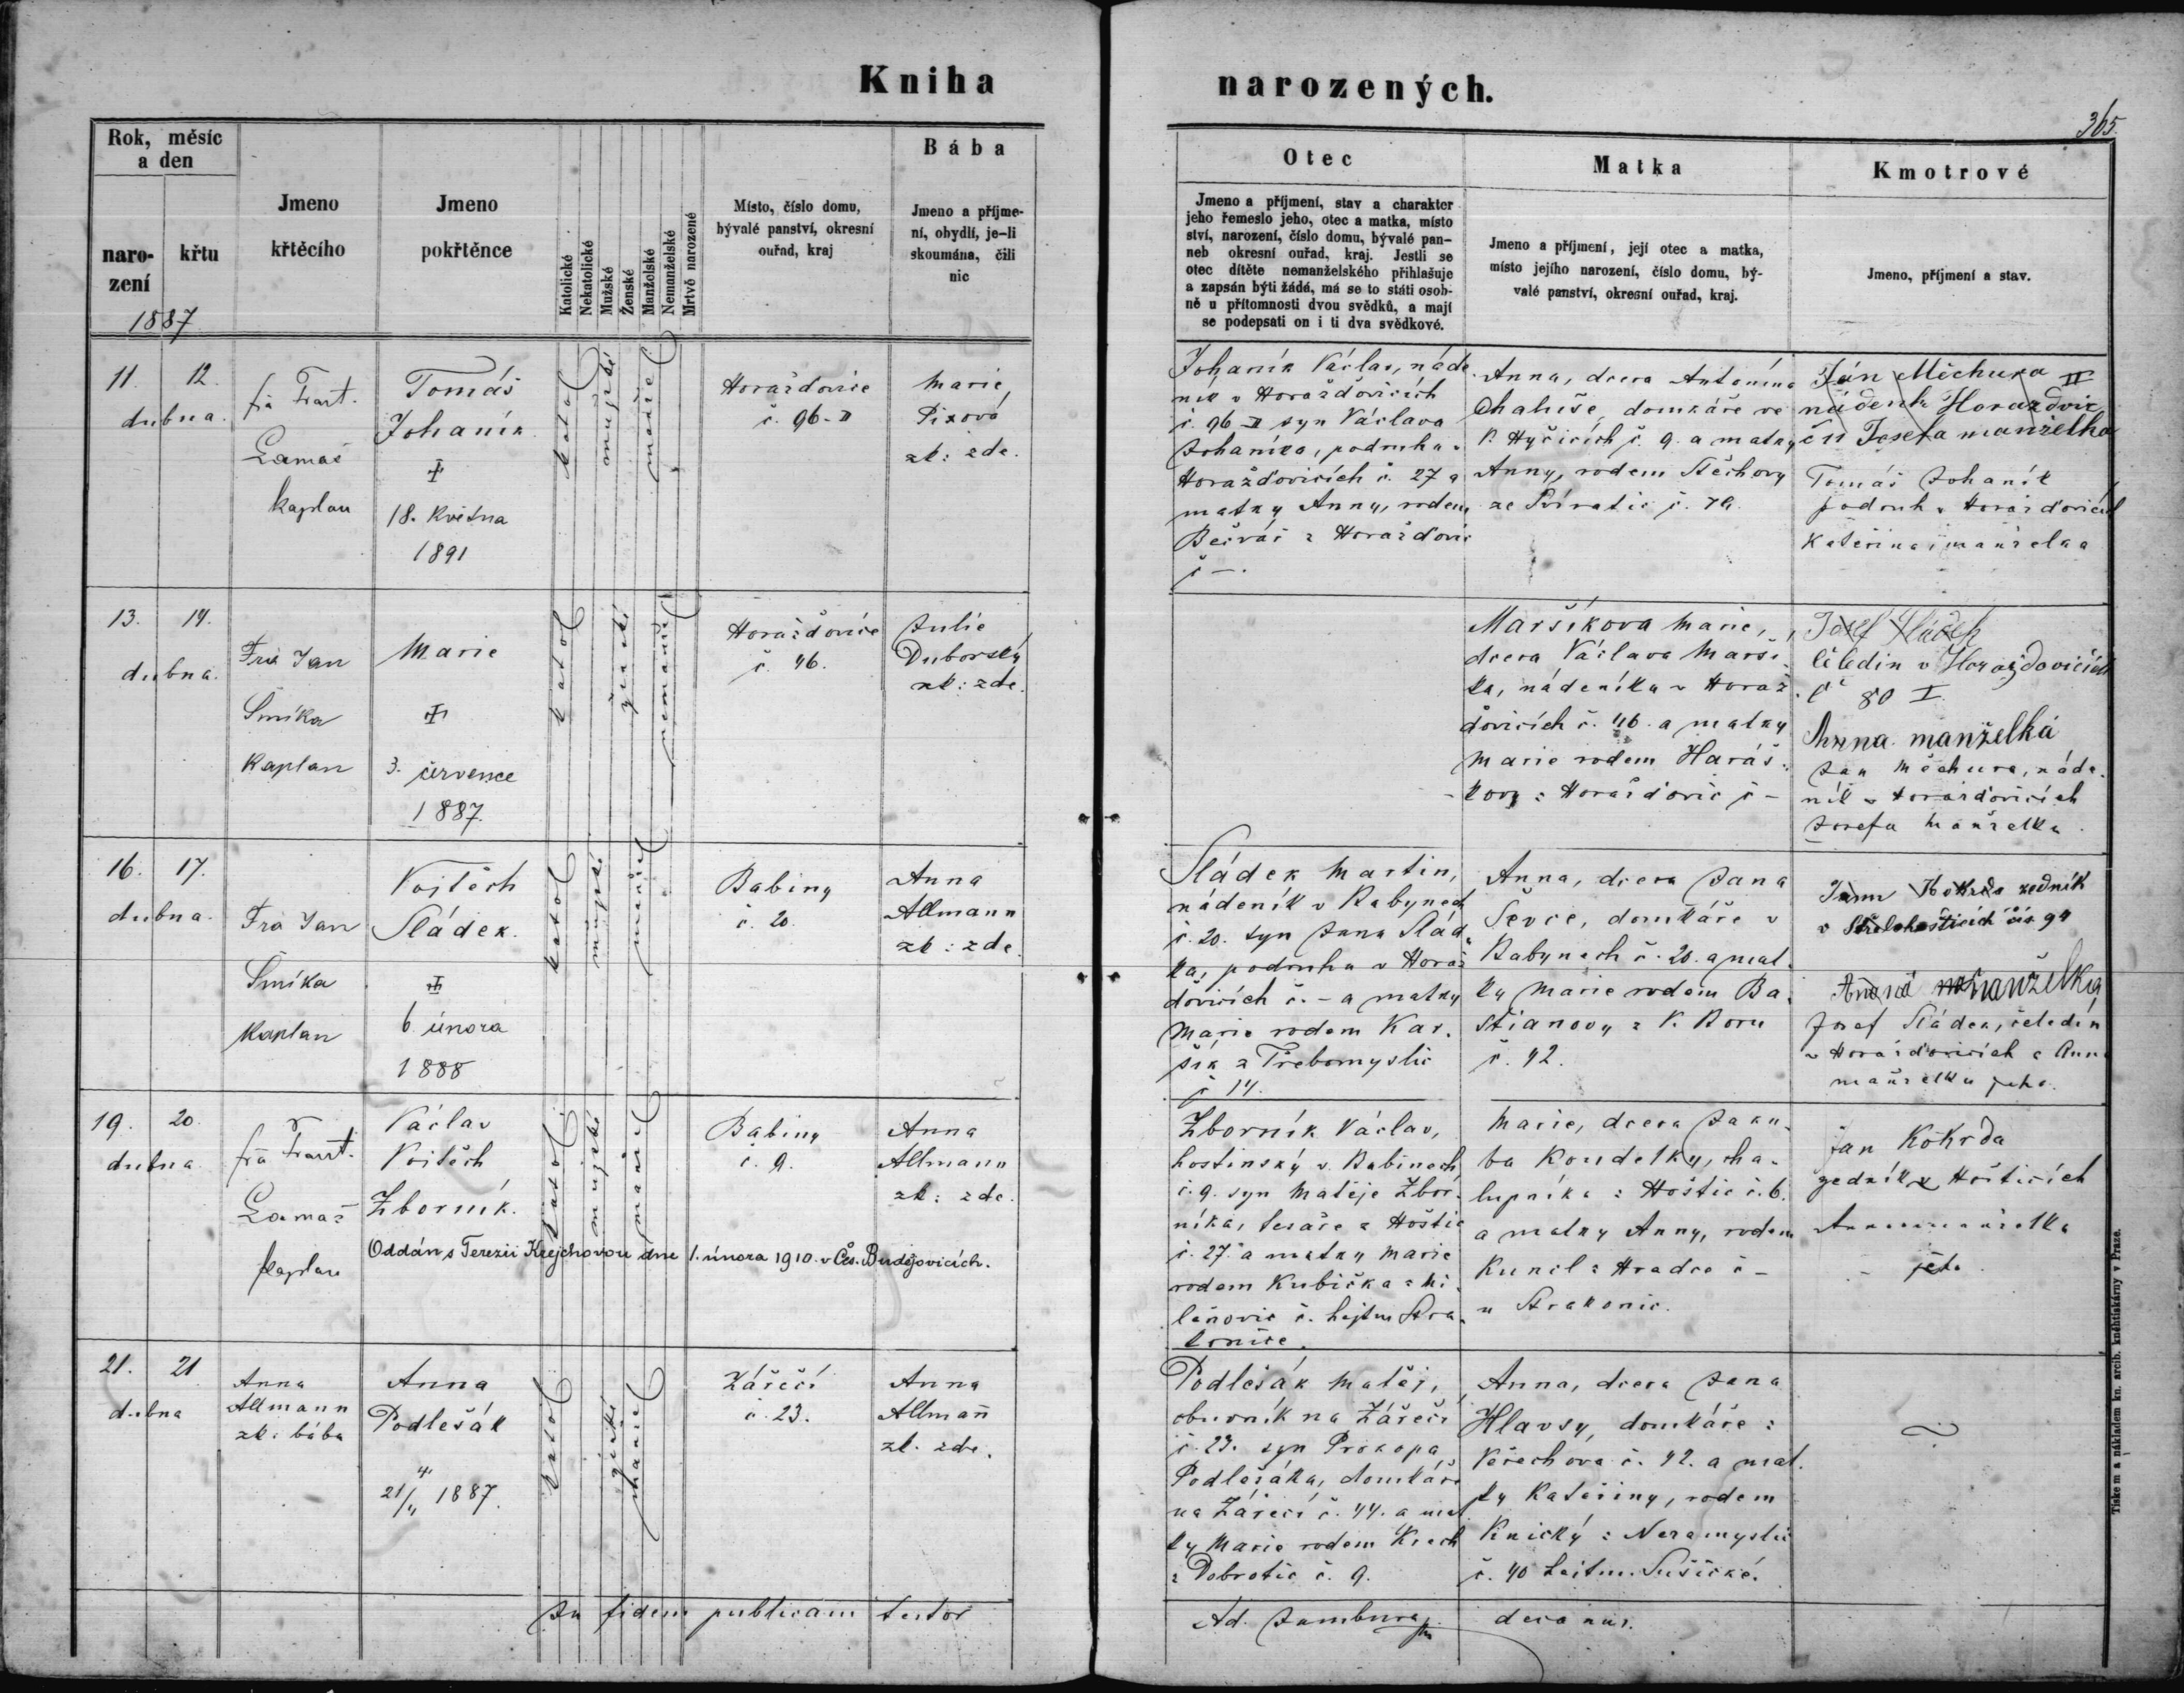 Kniha
narozených.
365.
Rok, měsíc
a den
naro-
zení
křtu
1887
Jmeno
křtěcího
Jmeno
pokřtěnce
Katolické
Nekatolické
Mužské
Ženské
Manželské
Nemanželské
Mrtvě narozené
Místo, číslo domu,
bývalé panství, okresní
ouřad, kraj
Bába
Jmeno a příjme-
ní, obydlí, je-li
skoumána, čili
nic
Otec
Jmeno a příjmení, stav a charakter
jeho řemeslo jeho, otec a matka, místo
ství, narození, číslo domu, bývalé pan-
neb okresní ouřad, kraj. Jestli se
otec dítěte nemanželského přihlašuje
a zapsán býti žádá, má se to státi osob-
ně u přítomnosti dvou svědků, a mají
se podepsati on i ti dva svědkové.
Matka
Jmeno a příjmení, její otec a matka,
místo jejího narození, číslo domu, bý-
valé panství, okresní ouřad, kraj.
Kmotrové
Jmeno, příjmení a stav.
11. 12.
dubna.
Frant.
Lamač
kaplan
Tomáš
Johaník
18. května
1891
katol
mužské
manžel
Horažďovice
č. 96-II
Marie
Pixová
zk: zde.
Johaník Václav, náde
ník v Horažďovicích
č. 96-II syn Václava
Johaníka, podruha v
Horažďovicích č. 27 a
matky Anny, rodem
Bečvář z Horažďovic
č -.
Anna, dcera Antonína
Chaluše, domkáře ve
V. Hyčicích č. 9. a matky
Anny, rodem Stěchovy
Ján Měchura II
nádeník Horažďovic
Josefa manželka
Tomáš Johaník
podruh v Horažďovicích
Kateřina, manželka
13. 14.
dubna.
Jan
Šmíka
Kaplan
Marie
3. července
1887.
katol
ženské
nemanžel
Horažďovice
č. 46.
Julie
Duborský
zk: zde.
Maršíkova Marie,
dcera Václava Marší-
ka, nádeníka v Horaž-
ďovicích č. 46. a matky
Marie rodem Haráš-
kovy z Horažďovic č -
Josef Sládek
čeledin v Horažďovicích
č 80 I.
Anna manželka
Jan Měchura, náde-
ník v Horažďovicích
Josefa manželka.
16. 17.
dubna.
Jan
Šmíka
Kaplan
Vojtěch
Sládek.
6. února
1888
katol
mužské
manžel
Babiny
č. 20.
Anna
Allmann
zk: zde.
Sládek Martin,
nádeník v Babynech
č. 20. syn Jana Slád-
ka, podruha v Horaž
ďovicích č. - a matky
Marie rodem Kar-
šík z Třebomyslic
č 14.
Anna, dcera Jana
Ševce, domkáře v
Babynech č. 20. a mat-
ky Marie rodem Ba-
stianovy z V. Boru
č. 42.
Jan Kokrda zedník
v Střelohošticích čís 94
Anna manželka
Josef Sládek, čeledín
v Horažďovicích a Anna
manželka jeho.
19. 20.
dubna.
Frant.
Lamač
kaplan
Václav
Vojtěch
Zborník.
Oddán s Terezií Krejchovou dne 1. února 1910. v Čes. Budějovicích.
katol
mužské
manžel
Babiny
č. 9.
Anna
Allmann
zk: zde.
Zborník Václav,
hostinský v Babinech
č. 9. syn Matěje Zbor-
níka, tesaře z Hoštic
č. 27. a matky Marie
rodem Kubička z Mi-
lčnovic č. hejtm Stra-
konice.
Marie, dcera Jaku-
ba Koudelky, cha-
lupníka z Hoštic č. 6.
a matky Anny, rodem
Kuncl z Hradce č -
u Strakonic.
Jan Kokrda
zedník v Hošticích
Anna manželka
jeho
21. 21
dubna
Anna
Allmann
zk: bába
Anna
Podlešák
21/4 1887.
katol
ženské
manžel
Zářečí
č. 23.
Anna
Allmann
zk. zde.
Podlešák Matěj,
obuvník na Zářečí
č. 23. syn Prokopa
Podlešáka, domkáře
na Zářečí č. 44. a mat
ky Marie rodem Krech
z Dobrotic č. 9.
Anna, dcera Jana
Hlavsy, domkáře z
Kečechova č. 42. a mat-
ky Kateřiny, rodem
Knický z Neramyslic
č. 40 hejtm. Sušické.
In fidem publicam testor
Ad. Jambura
decanus.
Tiskem a nákladem kn. arcib. kněhtiskárny v Praze.